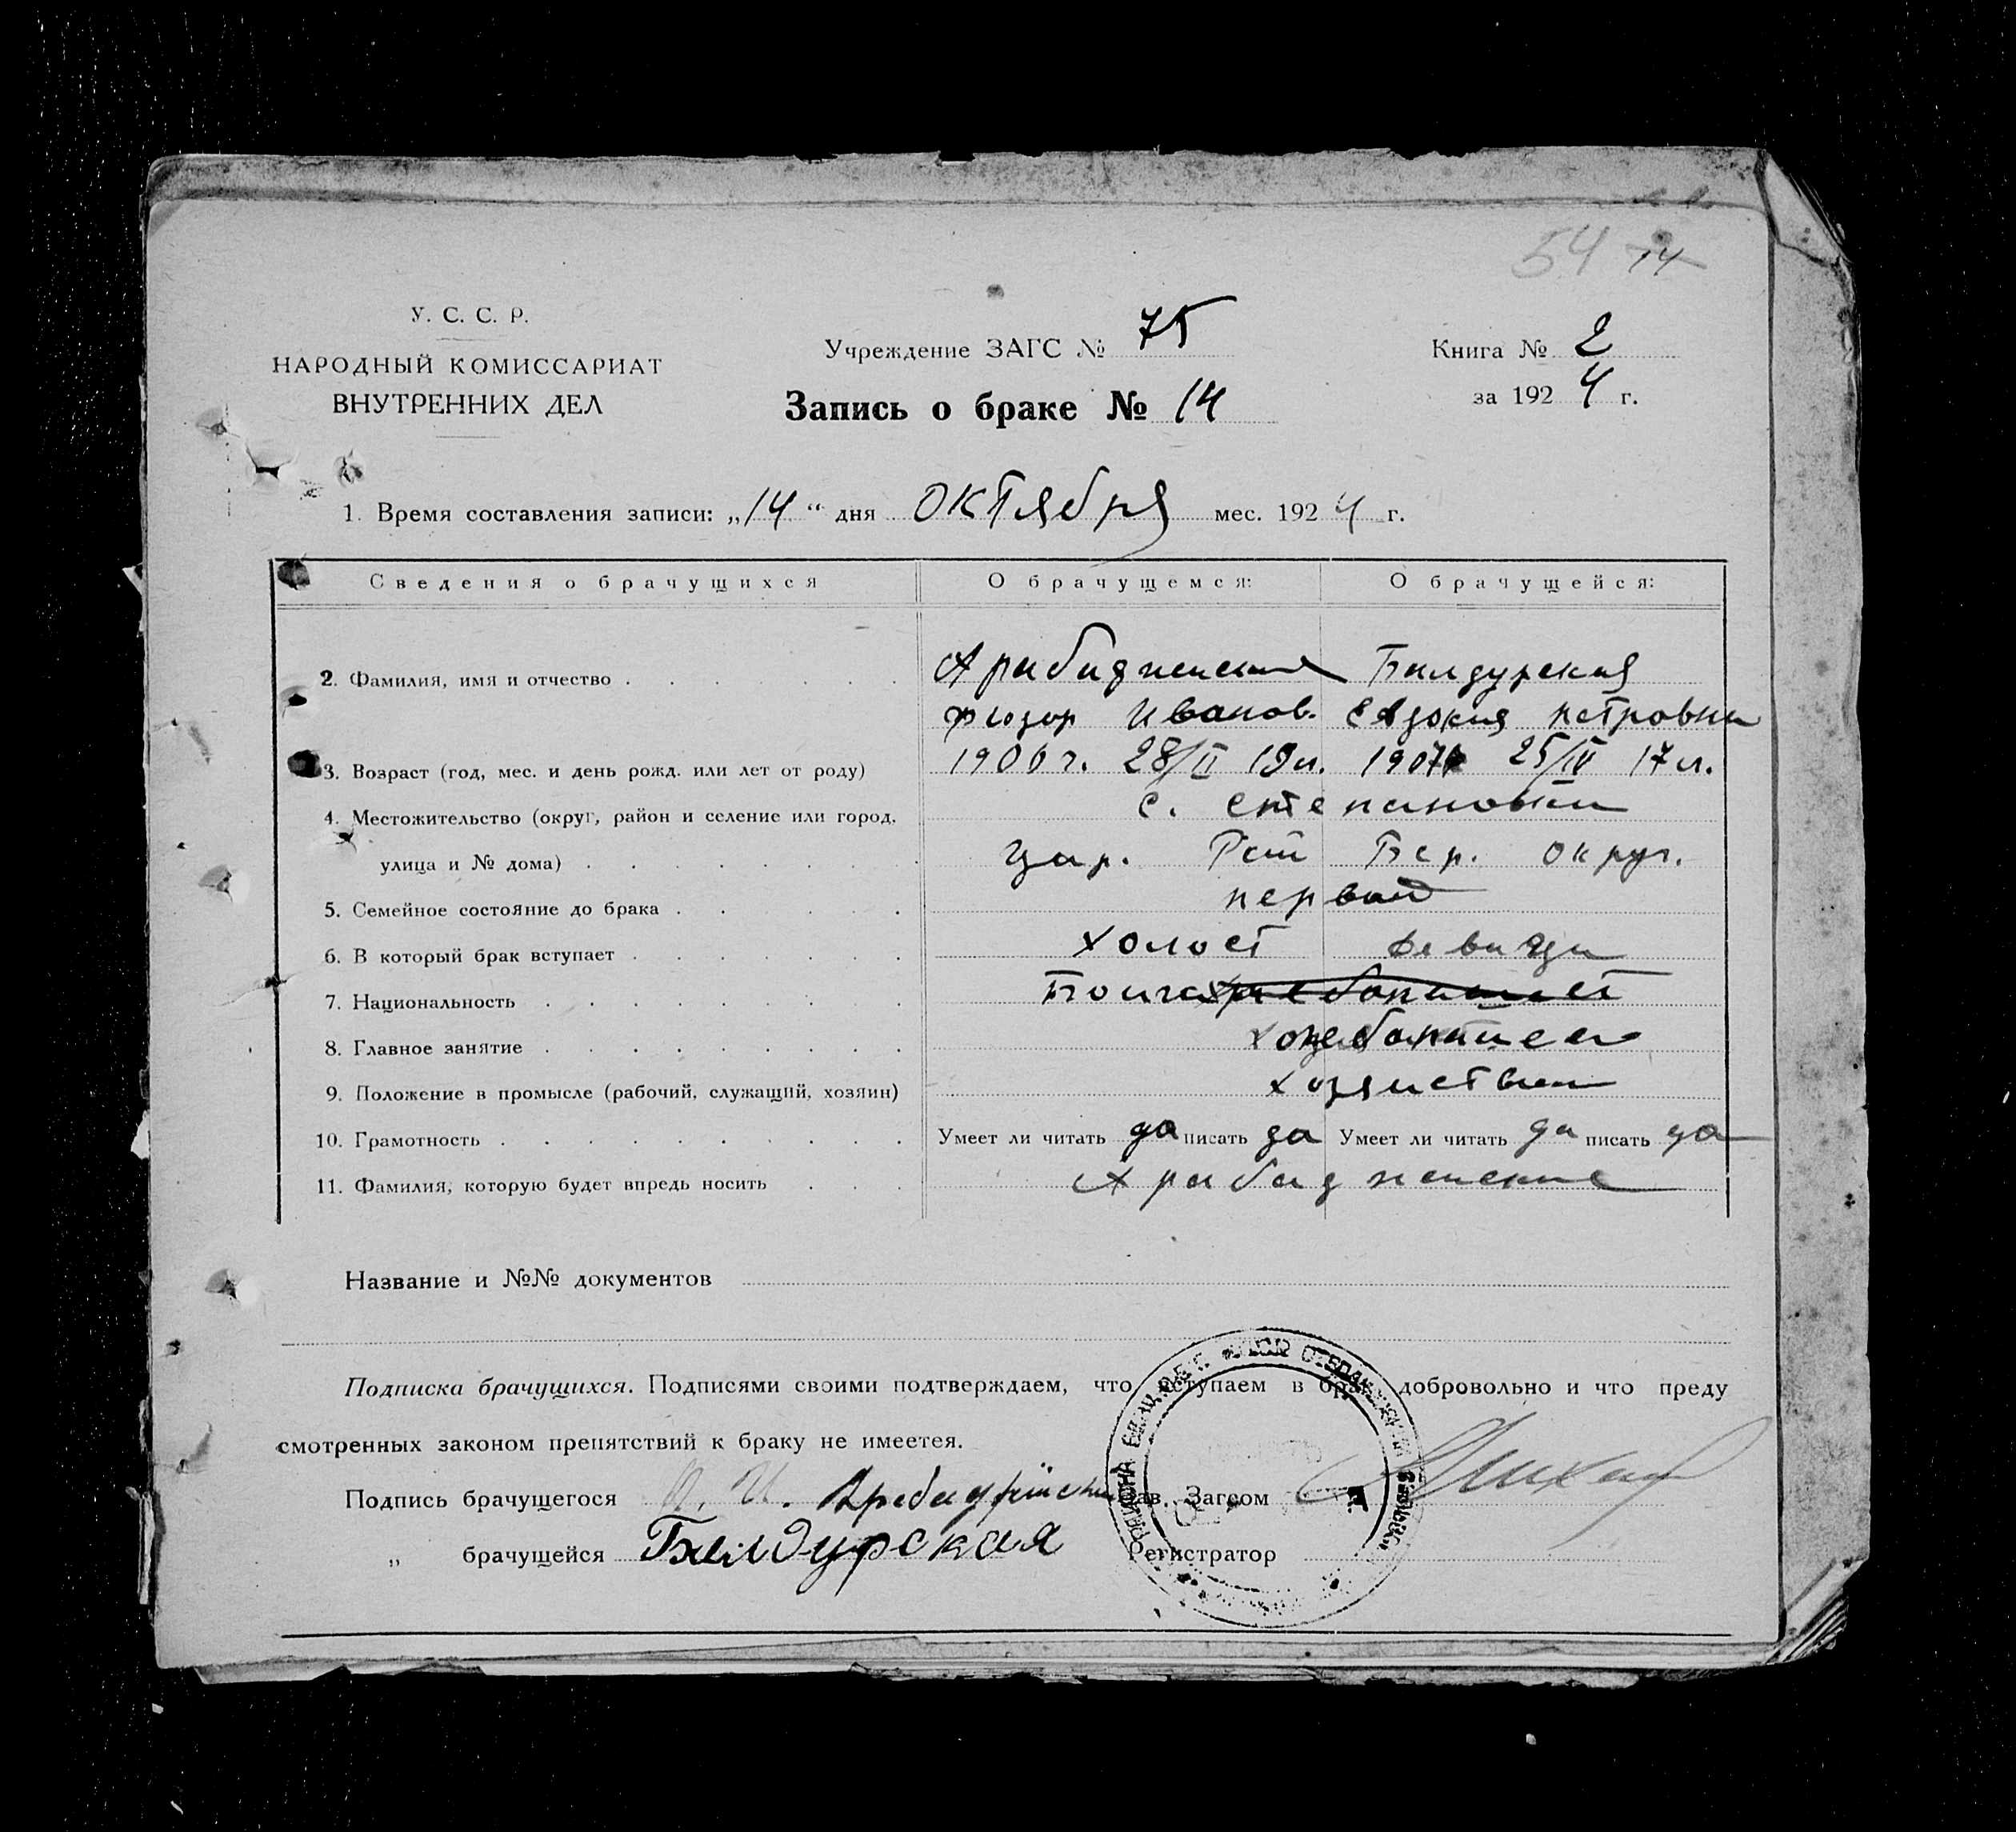 54 14
У. С. С. Р.
НАРОДНЫЙ КОМИССАРИАТ
ВНУТРЕННИХ ДЕЛ
Учреждение ЗАГС № 75
Запись о браке № 14
Книга № 2
за 1924 г.
1. Время составления записи: „14“ дня октября мес. 1924 г.
Сведения о брачущихся О брачущемся: О брачущейся:
2. Фамилия, имя и отчество Арабаджиски Балдурская
Фиодор Иванов. Евдокия петровна
3. Возраст (год, мес. и день рожд. или лет от роду) 1906 г. 28/II 19 л. 1907 25/IV 17 л.
4. Местожительство (округ, район и селение или город, с. степановка
улица и № дома) Цар. Бер. округ.
5. Семейное состояние до брака первый
6. В который брак вступает холост девица
7. Национальность
8. Главное занятие хлебопашец
9. Положение в промысле (рабочий, служащий, хозяин)
10. Грамотность Умеет ли читать да писать да Умеет ли читать да писать да
11. Фамилия, которую будет впредь носить Арабаджиски
Название и №№ документов
Подписка брачущихся. Подписями своими подтверждаем, что вступаем в брак добровольно и что преду
смотренных законом препятствий к браку не имеетея.
Подпись брачущегося Зав. Загсом
„ брачущейся Балдурская Регистратор